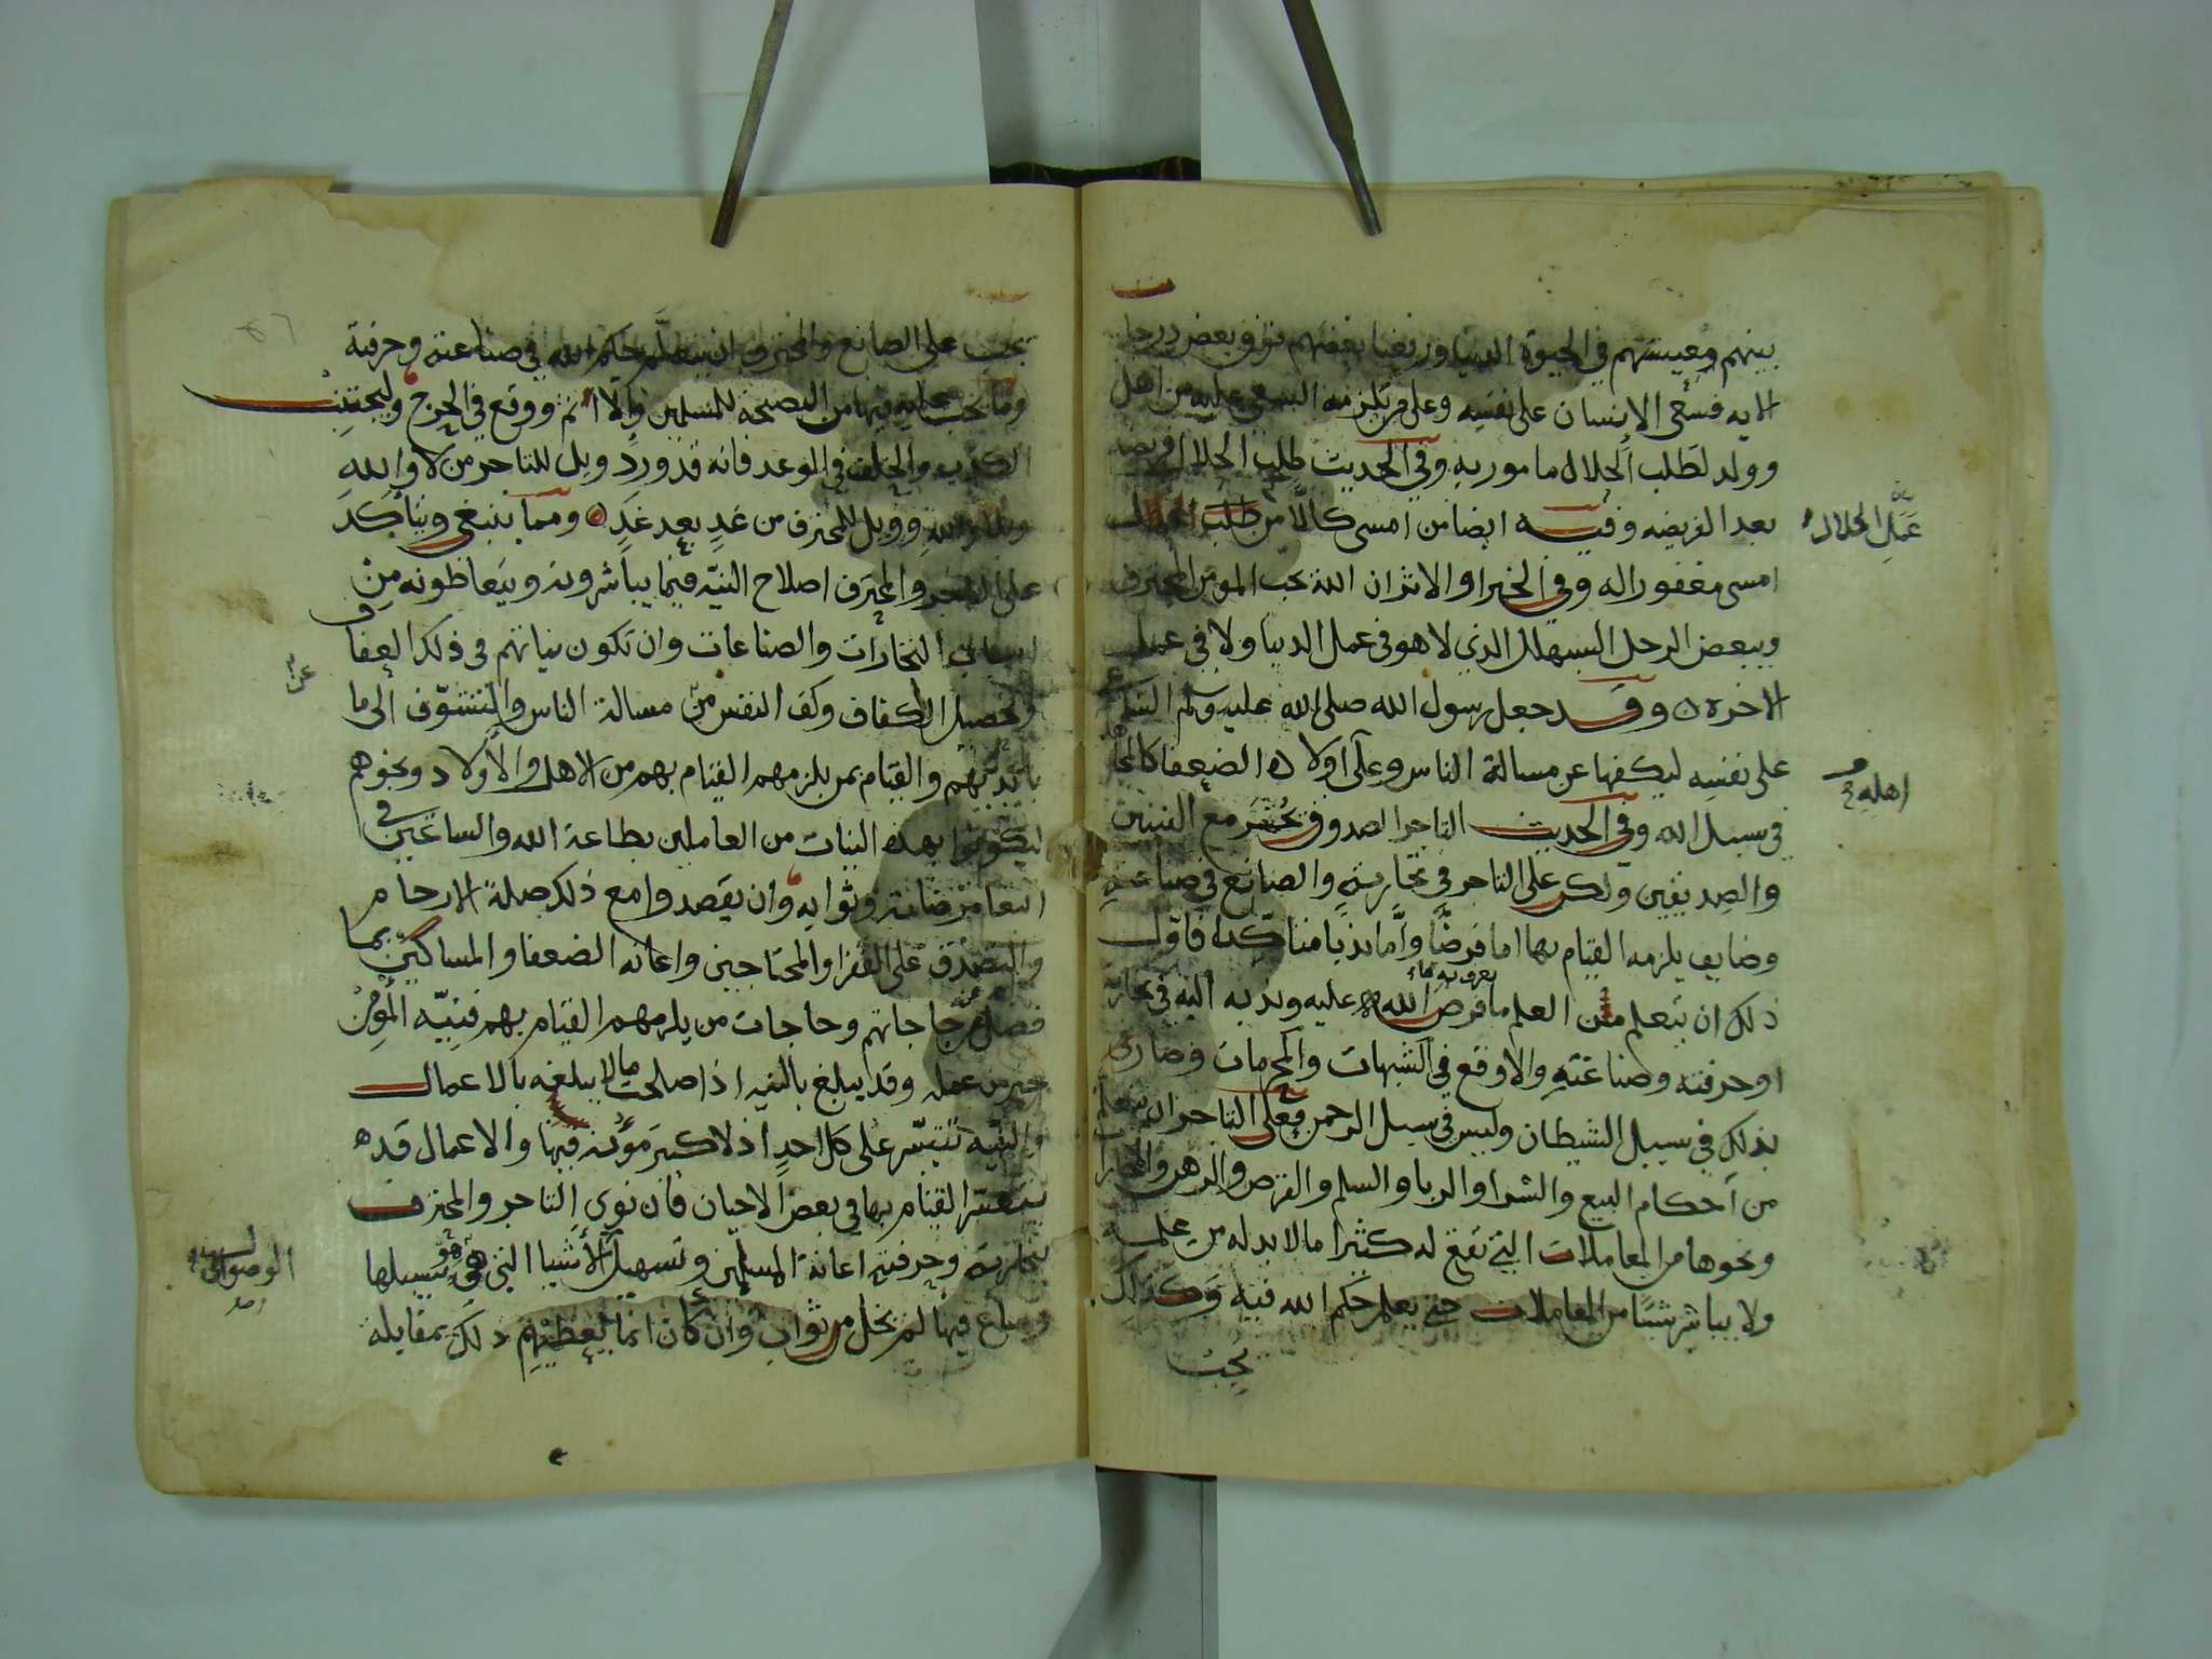 بينهم معيشتهم في الحيوة الدنيا ورفعنا بعضهم فوق بعض درجات
الايه فسعى الانسان على نفسه وعلى من تلزمه السعي عليه من اهل
وولد لطلب الحلال مامور به وفي الحديث طلب الحلال فريضه
بعد الفريضه وفيه ايضا من امسى كالا من طلب الحلال
عمل الحلال
امسى مغفورا له وفي الخبر او الاثر ان الله يحب المومن المحترف
ويبغض الرجل السبهلل الذي لا هو في عمل الدنيا ولا في عمل
الاخره وقد جعل رسول الله صلى الله عليه وسلم
على نفسه ليكفها عن مسالة الناس وعلى اولاده الضعفا كالجها
اهله و
في سبيل الله وفي الحديث التاجر الصدوق يحشر مع النبيين
والصديقين ولكن على التاجر في تجارته والصانع في صناعته
وضايف يلزمه القيام بها اما فرضا واما ندبا متاكدا فاول
ذلك ان يتعلم من العلم ما فرض الله عليه وندبه اليه في تجارته
او حرفته وصناعته والا وقع في الشبهات والمحرمات وصار
بذلك في سبيل الشيطان وليس في سبيل الرحمن فعلى التاجر ان يتعلم
من احكام البيع والشرا والربا والسلم والقرض والرهن والاجارا
ونحوها من المعاملات التي تقع له كثيرا ما لا بد له من علمه
ولا يباشر شيئا من المعاملات حتى يعلم حكم الله فيه وكذلك
يجب
يجب على الصانع والمحترف ان يتعلم حكم الله في صناعته وحرفته
وما يجب عليه فيها من النصيحة للمسلمين والا اثم ووقع في الحرج وليجتنب
الكذب والخلف في الوعد فانه قد ورد ويل للتاجر من لا والله
وبلى والله وويل للمحترف من غد بعد غد ومما ينبغي ويتأكد
على التاجر والمحترف اصلاح النيه فيما يباشرونه ويتعاطونه من
اسباب التجارات والصناعات وان تكون نياتهم في ذلك العفاف
وتحصيل الكفاف وكف النفس من مسالة الناس والتشوف الى ما
عن
بايديهم والقيام بمن يلزمهم القيام بهم من الاهل والاولاد ونحوهم
ليكونوا بهذه النيات من العاملين بطاعة الله والساعين في
ابتغا مرضاته وثوابه وان يقصدوا مع ذلك صلة الارحام
والتصدق على الفقرا والمحتاجين واعانه الضعفا والمساكين بما
فضل عن حاجاتهم وحاجات من يلزمهم القيام بهم فنيه المؤمن
خير من عمله وقد يبلغ بالنيه اذا صلحت ما لا يبلغه بالاعمال
والنيه تتيسر على كل احد اذ لا كبير مؤنه فيها والاعمال قد
يتعسر القيام بها في بعض الاحيان فان نوى التاجر والمحترف
بتجارته وحرفته اعانة المسلمين وتسهيل الاشيا التي هو يتسبب لها
الوصول
وساع فيها لم يخل من ثواب وان كان انما يعطيهم ذلك بمقابلة